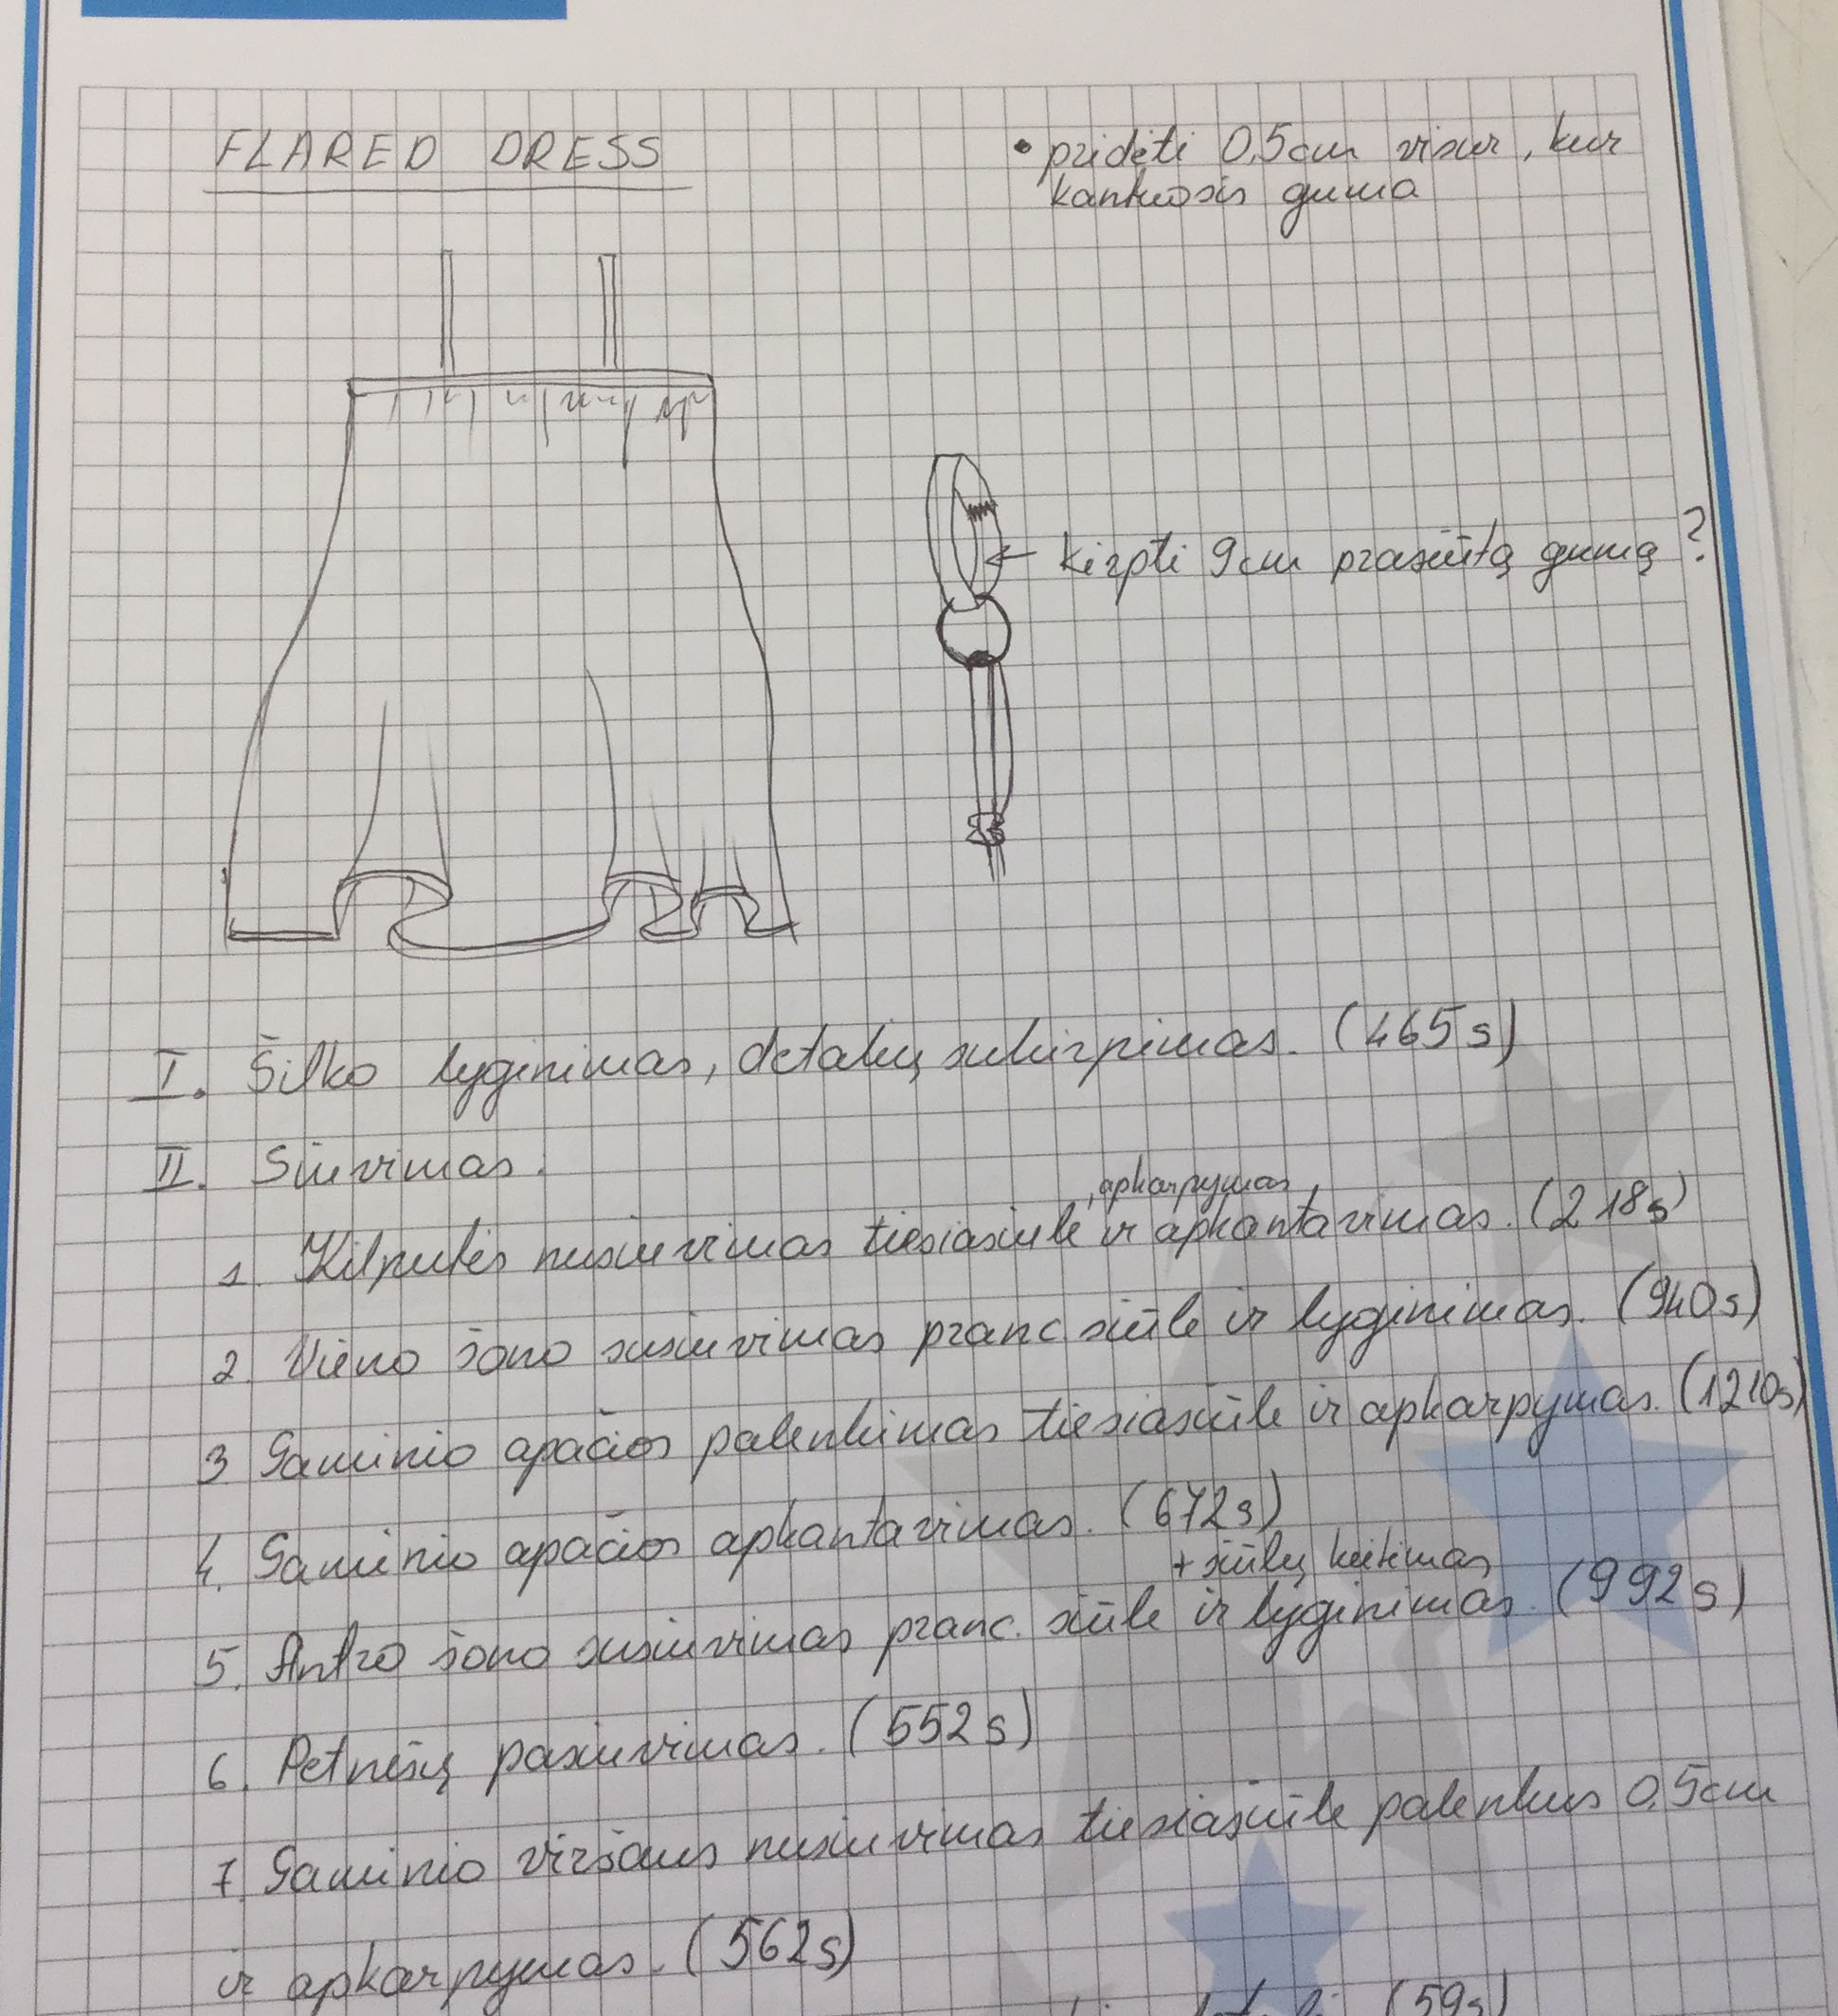 FLARED DRESS
• pridėti 0,5cm visur, kur
kantuosis guma
kirpti 9cm prasiūtą gumą ?
I. Šilko lyginimas, detalių sukirpimas. (465s)
II. Siuvimas.
, apkarpymas
1. Kilputės nusiuvimas tiesiasiūle ir apkantavimas. (218s)
2. Vieno šono susiuvimas pranc siūle ir lyginimas. (940s)
3 Gaminio apačios palenkimas tiesiasiūle ir apkarpymas. (1210s)
4. Gaminio apačios apkantavimas. (672s)
+ siūlų keitimas
5. Antro šono susiuvimas pranc. siūle ir lyginimas. (992s)
6. Petnešų pasiuvimas. (552s)
7. Gaminio viršaus nusiuvimas tiesiasiūle palenkus 0,5cm
ir apkarpymas. (562s)
(59s)